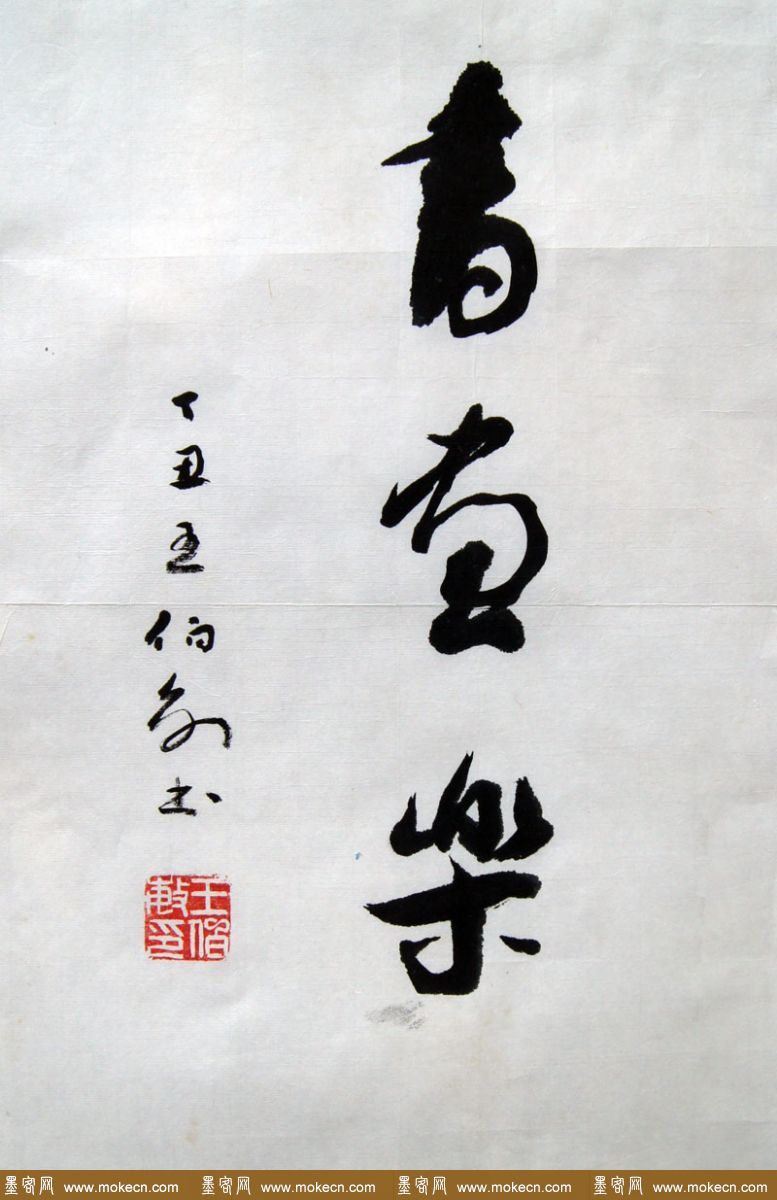 書畫樂
丁丑王伯敏书
王伯敏印
墨客网 www.mokecn.com 墨客网 www.mokecn.com 墨客网 www.mokecn.com 墨客网 www.mokecn.com